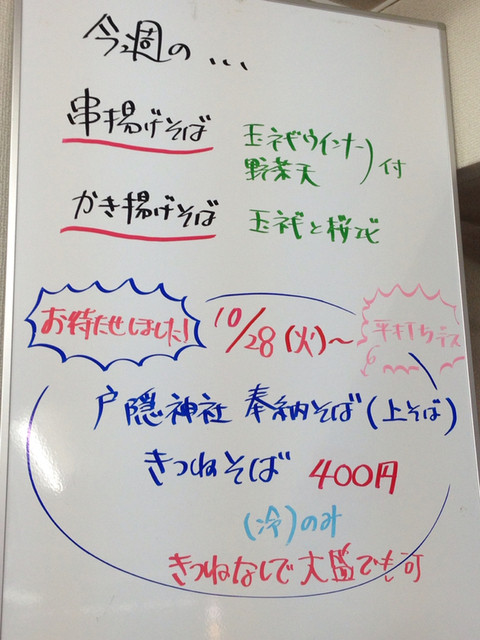 今週の...
串揚げそば
玉ネギウインナー
野菜天
付
かき揚げそば
玉ネギと桜エビ
お待たせしました!
10/28(火)〜
平打ちデス
戸隠神社 奉納そば(上そば)
きつねそば 400円
(冷)のみ
きつねなしで大盛でも可